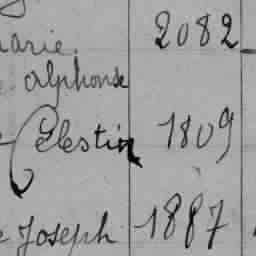 marie 2082
Alphonse
Célestin 1809
Joseph 1887